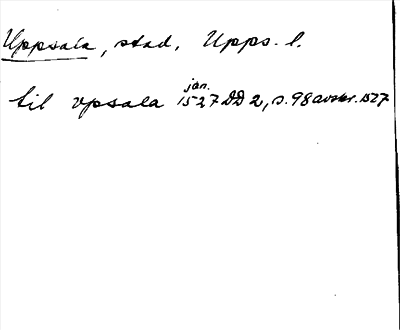 Uppsala, stad. Upps. l.
jan.
til vpsala 1527 DD 2, s. 98 avskr. 1527